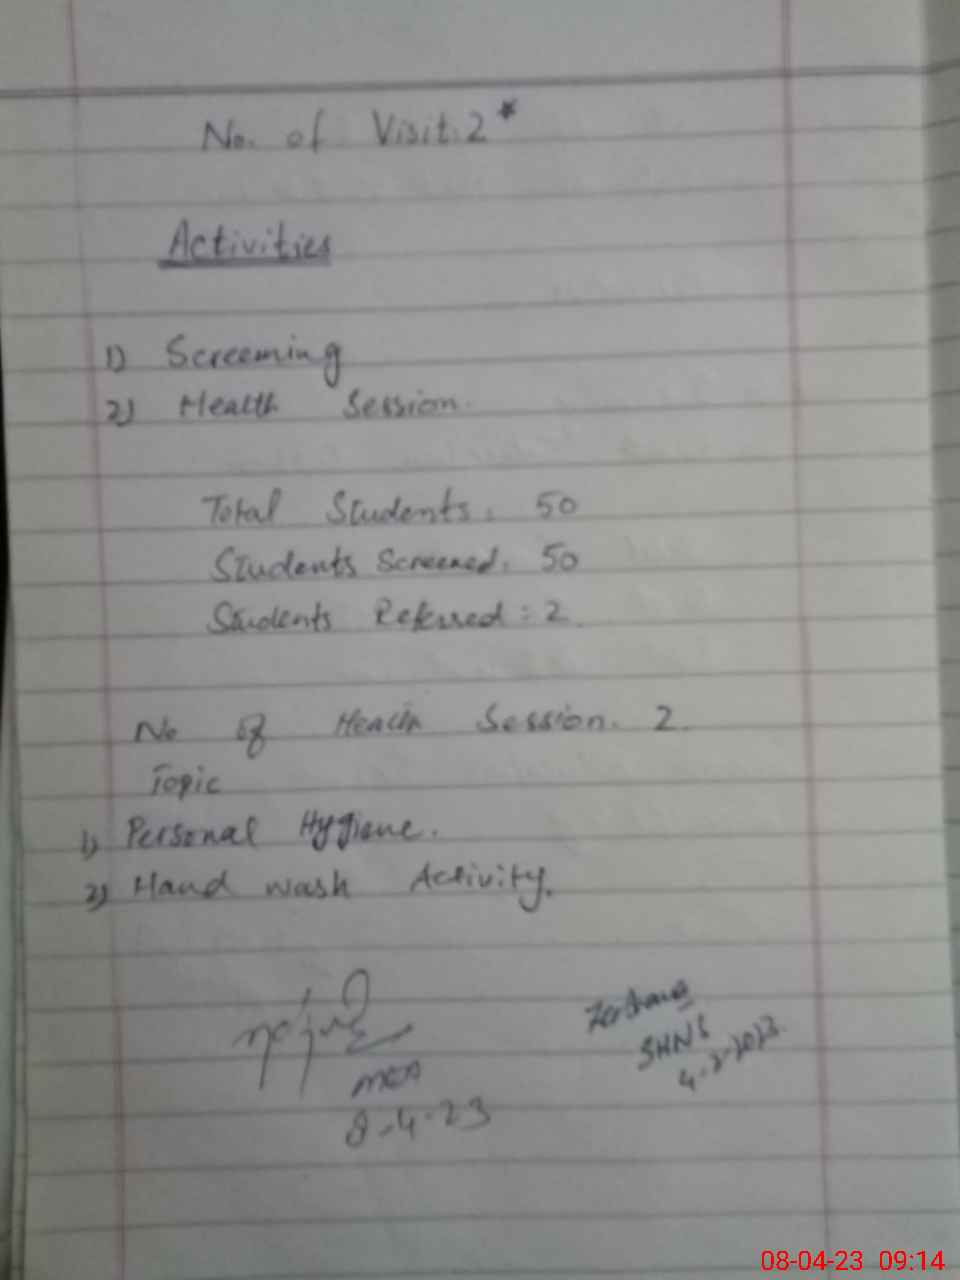 No. of Visit. 2*
Activities
1) Screening
2) Health Session.
Total Students: 50
Students Screened: 50
Students Referred: 2.
No of Health Session. 2.
Topic
1) Personal Hygiene.
2) Hand wash Activity.
8-4-23
08-04-23 09:14